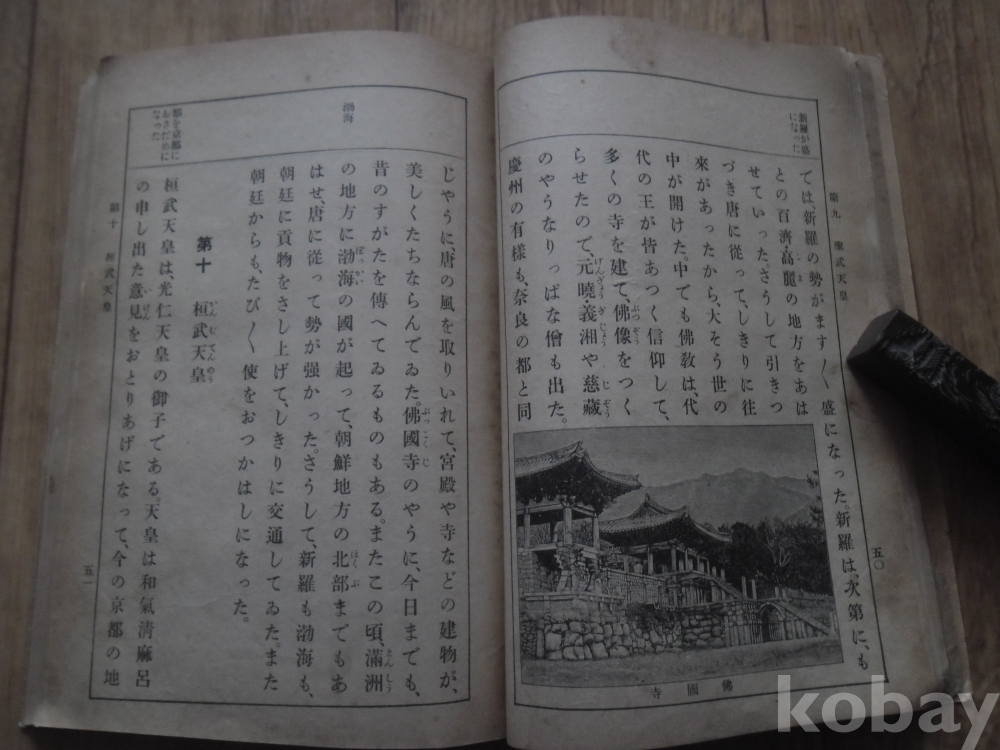 新羅が盛
になった
第九　聖武天皇
五〇
では、新羅の勢がます〱盛になった。新羅は、次第に、も
との百濟・高麗の地方をあは
せていった。さうして引きつ
づき唐に從って、しきりに往
來があったから、大そう世の
中が開けた。中でも佛教は、代
代の王が皆あつく信仰して、
多くの寺を建て、佛像をつく
らせたので、元曉・義湘や慈藏
のやうなりっぱな僧も出た。
慶州の有樣も、奈良の都と同
佛國寺
渤海
じやうに、唐の風を取りいれて、宮殿や寺などの建物が、
美しくたちならんでゐた。佛國寺のやうに、今日までも、
昔のすがたを傳へてゐるものもある。またこの頃、滿洲
の地方に渤海の國が起って、朝鮮地方の北部までもあ
はせ、唐に從って勢が强かった。さうして、新羅も渤海も、
朝廷に貢物をさし上げて、しきりに交通してゐた。また
朝廷からも、たび〱使をおつかはしになった。
第十　桓武天皇
都を京都に
おさだめに
なった
桓武天皇は、光仁天皇の御子である。天皇は和氣淸麻呂
の申し出た意見をおとりあげになって、今の京都の地
第十　桓武天皇
五一
kobay